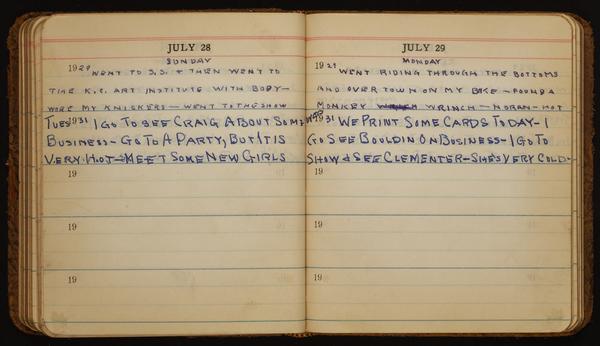 JULY 28
SUNDAY
1929 WENT TO S.S. + THEN WENT TO
THE K.C. ART INSTITUTE WITH BODY-
WORE MY KNICKERS - WENT TO THE SHOW
TUES 1931 I GO TO SEE CRAIG ABOUT SOME
BUSINESS - GO TO A PARTY, BUT IT IS
VERY HOT - MEET SOME NEW GIRLS
19
19
19
JULY 29
MONDAY
1929 WENT RIDING THROUGH THE BOTTOMS
AND OVER TOWN ON MY BIKE - FOUND A
MONKEY WRINCH - NORAN - HOT
WED 1931 WE PRINT SOME CARDS TODAY - I
GO SEE BOULDIN ON BUSINESS - I GO TO
SHOW & SEE CLEMENTER - SHE'S VERY COLD -
19
19
19